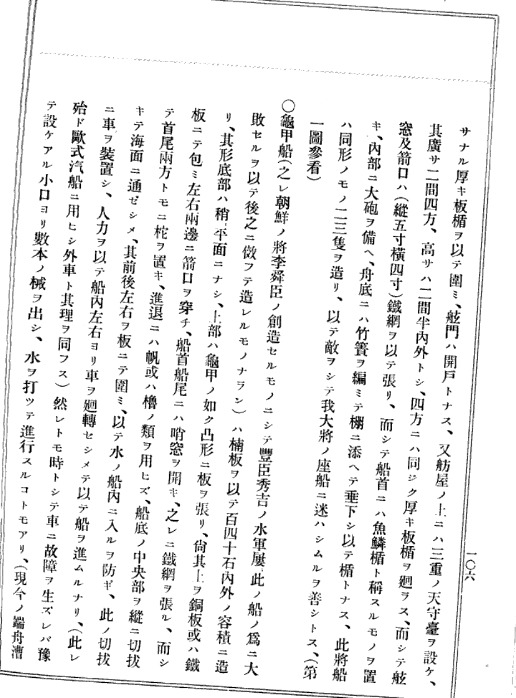 一〇六
サナル厚キ板楯ヲ以テ圍ミ、舷門ハ開戶トナス、又舫屋ノ上ニハ三重ノ天守臺ヲ設ケ、
其廣サ二間四方、高サハ二間半內外トシ、四方ニハ同ジク厚キ板楯ヲ廻ヲス、而シテ舷
窓及箭口ハ(縱五寸橫四寸)鐵網ヲ以テ張リ、而シテ船首ニハ魚鱗楯ト稱スルモノヲ置
キ、內部ニ大砲ヲ備ヘ、舟底ニハ竹簀ヲ編ミテ棚ニ添ヘテ垂下シ以テ楯トナス、此將船
ハ同形ノモノ二三隻ヲ造リ、以テ敵ヲシテ我大將ノ座船ニ迷ハシムルヲ善シトス、(第
一圖參看)
〇龜甲船(之レ朝鮮ノ將李舜臣ノ創造セルモノニシテ豐臣秀吉ノ水軍屢此ノ船ノ爲ニ大
敗セルヲ以テ後之ニ倣フテ造レルモノナラン)ハ楠板ヲ以テ百四十石內外ノ容積ニ造
リ、其形底部ハ稍平面ニナシ、上部ハ龜甲ノ如ク凸形ニ板ヲ張リ、尙其上ヲ銅板或ハ鐵
板ニテ包ミ左右兩邊ニ箭口ヲ穿チ、船首船尾ニハ哨窓ヲ開キ、之レニ鐵網ヲ張ル、而シ
テ首尾兩方トモニ柁ヲ置キ、進退ニハ帆或ハ櫓ノ類ヲ用ヒズ、船底ノ中央部ヲ縱ニ切拔
キテ海面ニ通ゼシメ、其前後左右ヲ板ニテ圍ミ、以テ水ノ船內ニ入ルヲ防ギ、此ノ切拔
ニ車ヲ裝置シ、人力ヲ以テ船內左右ヨリ車ヲ廻轉セシメテ以テ船ヲ進ムルナリ、(此レ
殆ド歐式汽船ニ用ヒシ外車ト其理ヲ同フス)然レトモ時トシテ車ニ故障ヲ生ズレバ豫
テ設ケアル小口ヨリ數本ノ械ヲ出シ、水ヲ打ツテ進行スルコトモアリ、(現今ノ端舟漕